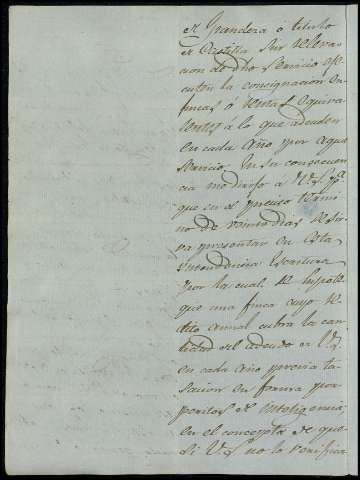 de Grandeza ó titulo
de Castilla sin releva-
cion de dho servicio eje-
cuten la consignación en
fincas ó rentas equiva-
lentes á lo que adeuden
en cada año por aquel
servicio. En su consecuen-
cia me dirijo á V. pª
que en el preciso termi-
no de veinte dias se sir-
va presentar en esta
intendencia Escritura
por la cual se hipote-
que una finca cuyo re-
dito annal cubra la can-
tidad del adeudo de V.
en cada año previa ta-
sacion en forma por
peritos de inteligencia
en el concepto de que
si V. no lo verifica